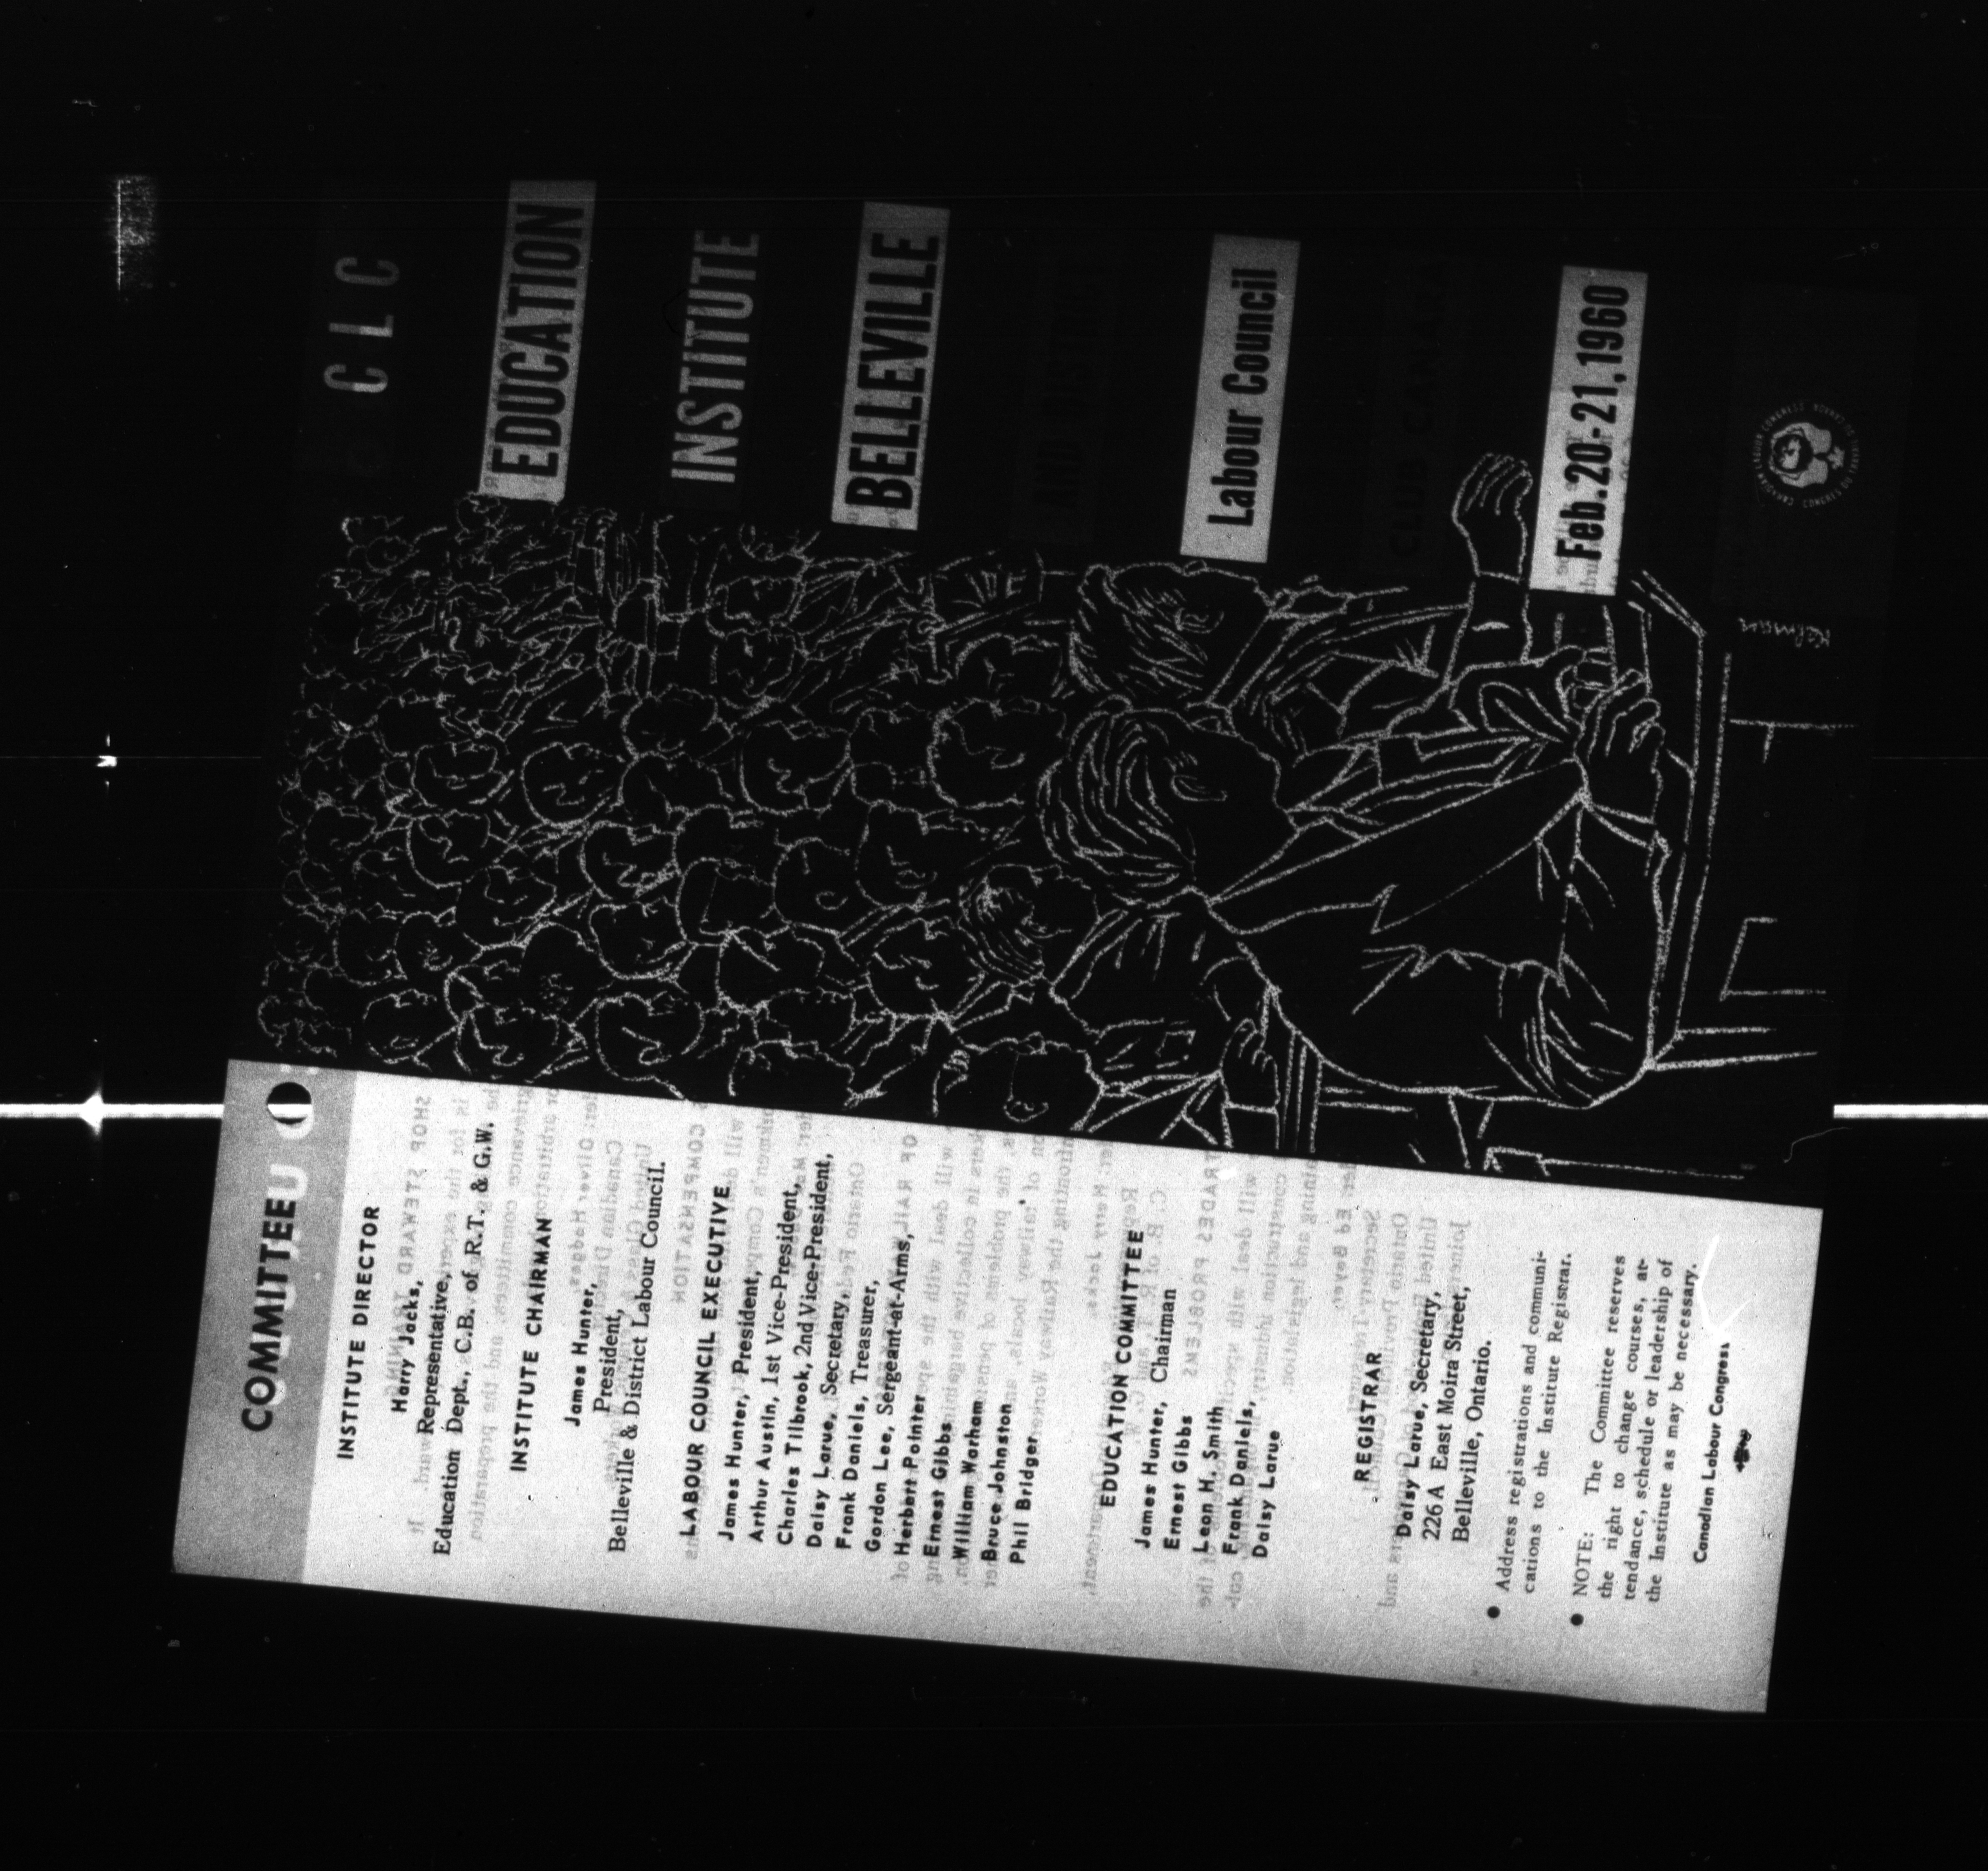 CLC
EDUCATION
INSTITUTE
BELLEVILLE
AND DISTRICT
Labour Council
Feb. 20-21, 1960
CANADIAN LABOUR CONGRESS
CONGRÈS DU TRAVAIL DU CANADA
Kelman
COMMITTEE
INSTITUTE DIRECTOR
Harry Jacks,
Representative,
Education Dept., C.B. of R.T. & G.W.
INSTITUTE CHAIRMAN
James Hunter,
President,
Belleville & District Labour Council.
LABOUR COUNCIL EXECUTIVE
James Hunter, President,
Arthur Austin, 1st Vice-President,
Charles Tilbrook, 2nd Vice-President,
Daisy Larue, Secretary,
Frank Daniels, Treasurer,
Gordon Lee, Sergeant-at-Arms,
Herbert Pointer
Ernest Gibbs
William Warham
Bruce Johnston
Phil Bridger
EDUCATION COMMITTEE
James Hunter, Chairman
Ernest Gibbs
Leon H. Smith
Frank Daniels,
Daisy Larue
REGISTRAR
Daisy Larue, Secretary,
226 A East Moira Street,
Belleville, Ontario.
● Address registrations and communi-
cations to the Institute Registrar.
● NOTE: The Committee reserves
the right to change courses, at-
tendance, schedule or leadership of
the Institute as may be necessary.
Canadian Labour Congress